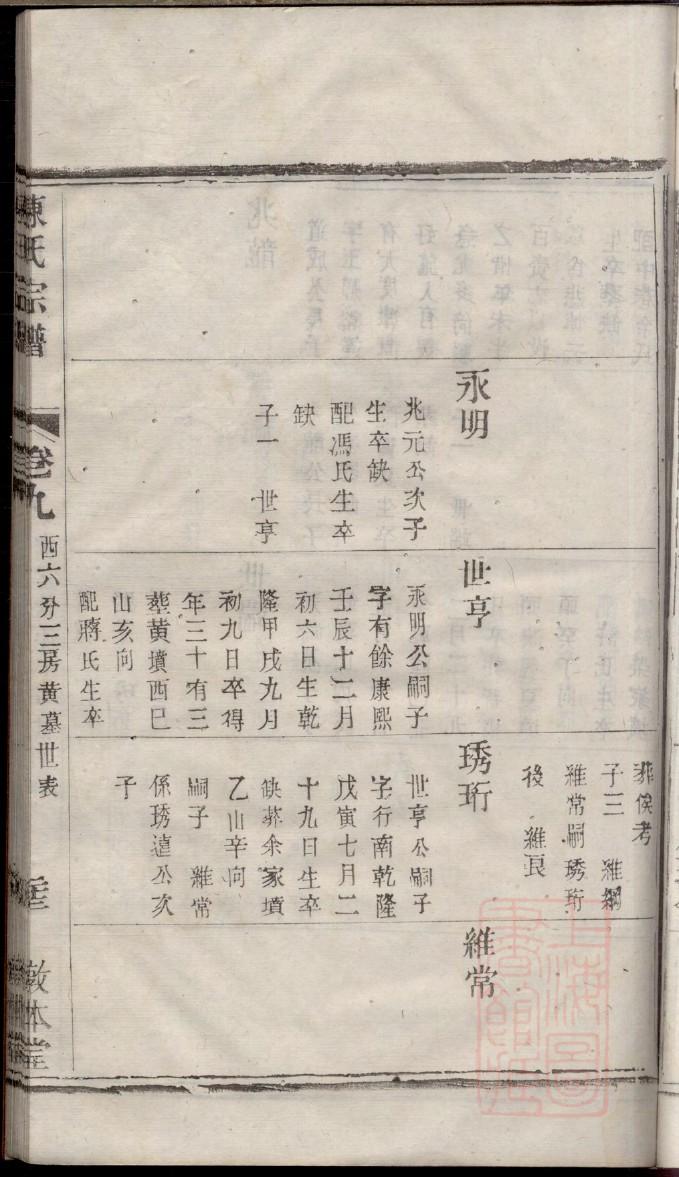 永明
兆元公次子
生卒缺
配馮氏生卒
缺
子一 世亨
世亨
永明公嗣子
字有餘康熙
壬辰十二月
初六日生乾
隆甲戌九月
初九日卒得
年三十有三
葬黄墳西巳
山亥向
配蔣氏生卒
葬俟考
子三 維綱
維常嗣琇珩
後 維良
琇珩
世亨公嗣子
字行南乾隆
戊寅七月二
十九日生卒
缺葬余家墳
乙山辛向
嗣子 維常
係琇遠公次
子
維常
陳氏宗譜
卷九
西六分三房黄墓世表
敦本堂
上海圖書館藏